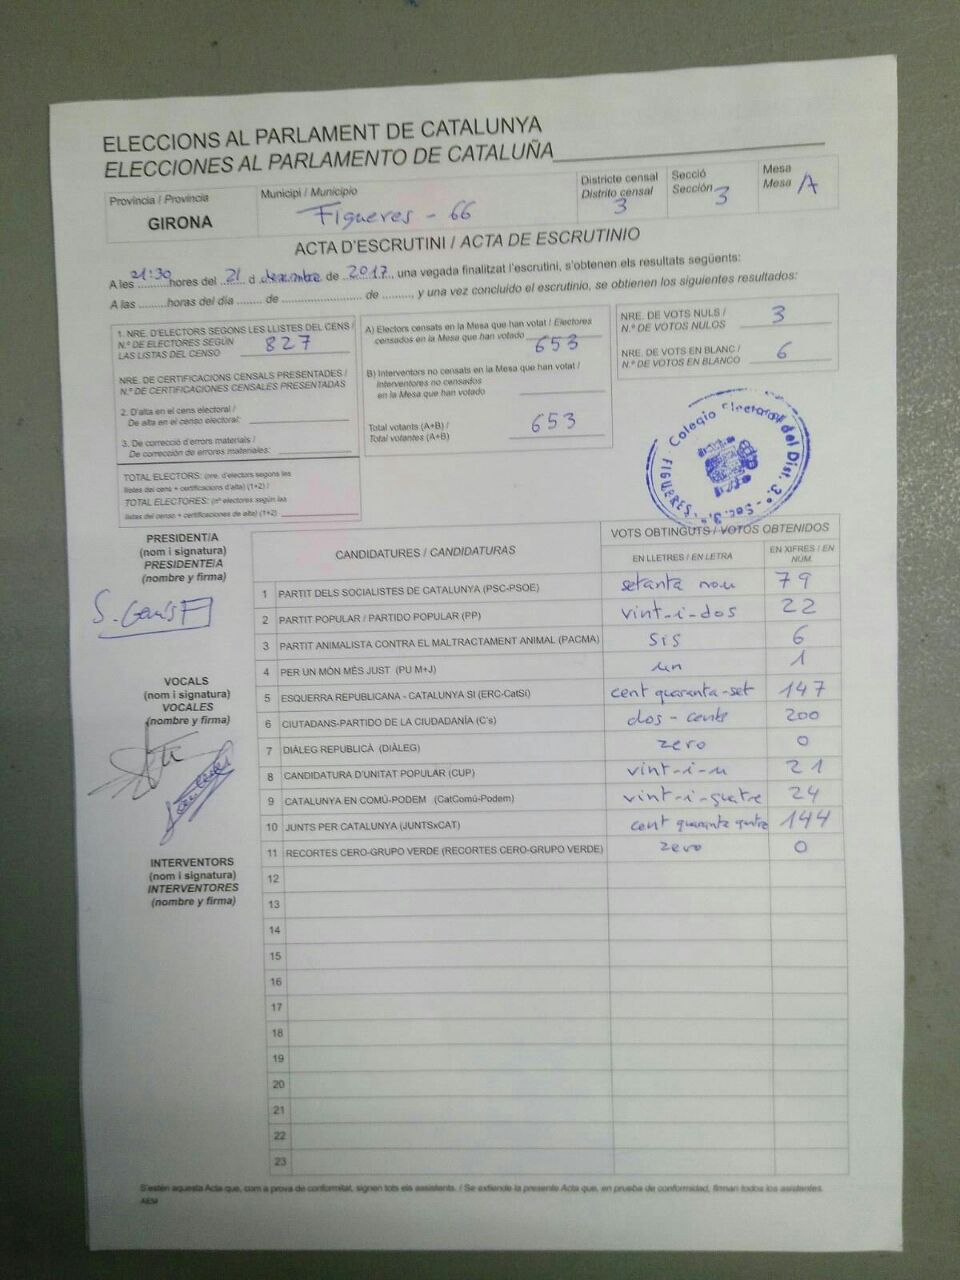 ELECCIONS AL PARLAMENT DE CATALUNYA
ELECCIONES AL PARLAMENTO DE CATALUÑA
Província / Provincia
GIRONA
Municipi / Municipio
Figueres - 66
Districte censal
Distrito censal
3
Secció
Sección
3
Mesa
Mesa
A
ACTA D'ESCRUTINI / ACTA DE ESCRUTINIO
A les 21:30 hores del 21 d desembre de 2017, una vegada finalitzat l'escrutini, s'obtenen els resultats següents:
A las ..........horas del día ........ de ......................... de .........., y una vez concluido el escrutinio, se obtienen los siguientes resultados:
1. NRE. D'ELECTORS SEGONS LES LLISTES DEL CENS /
N.º DE ELECTORES SEGÚN
LAS LISTAS DEL CENSO
827
NRE. DE CERTIFICACIONS CENSALS PRESENTADES /
N.º DE CERTIFICACIONES CENSALES PRESENTADAS
2. D'alta en el cens electoral /
De alta en el censo electoral:
3. De correcció d'errors materials /
De corrección de errores materiales:
TOTAL ELECTORS: (nre. d'electors segons les
llistes del cens + certificacions d'alta) (1+2) /
TOTAL ELECTORES: (nº electores según las
listas del censo + certificaciones de alta) (1+2)
A) Electors censats en la Mesa que han votat / Electores
censados en la Mesa que han votado
653
B) Interventors no censats en la Mesa que han votat /
Interventores no censados
en la Mesa que han votado
Total votants (A+B) /
Total votantes (A+B)
653
NRE. DE VOTS NULS /
N.º DE VOTOS NULOS
3
NRE. DE VOTS EN BLANC /
N.º DE VOTOS EN BLANCO
6
Colegio Electoral del Dist. 3.º - Sec. 3.ª
FIGUERES
PRESIDENT/A
(nom i signatura)
PRESIDENTE/A
(nombre y firma)
VOCALS
(nom i signatura)
VOCALES
(nombre y firma)
INTERVENTORS
(nom i signatura)
INTERVENTORES
(nombre y firma)
CANDIDATURES / CANDIDATURAS
VOTS OBTINGUTS / VOTOS OBTENIDOS
EN LLETRES / EN LETRA
EN XIFRES / EN NÚM.
1 PARTIT DELS SOCIALISTES DE CATALUNYA (PSC-PSOE) setanta nou 79
2 PARTIT POPULAR / PARTIDO POPULAR (PP) vint-i-dos 22
3 PARTIT ANIMALISTA CONTRA EL MALTRACTAMENT ANIMAL (PACMA) sis 6
4 PER UN MÓN MÉS JUST (PU M+J) un 1
5 ESQUERRA REPUBLICANA - CATALUNYA SÍ (ERC-CatSí) cent quaranta-set 147
6 CIUTADANS-PARTIDO DE LA CIUDADANÍA (C's) dos-cents 200
7 DIÀLEG REPUBLICÀ (DIÀLEG) zero 0
8 CANDIDATURA D'UNITAT POPULAR (CUP) vint-i-u 21
9 CATALUNYA EN COMÚ-PODEM (CatComú-Podem) vint-i-quatre 24
10 JUNTS PER CATALUNYA (JUNTSxCAT) cent quaranta quatre 144
11 RECORTES CERO-GRUPO VERDE (RECORTES CERO-GRUPO VERDE) zero 0
12
13
14
15
16
17
18
19
20
21
22
23
S'estén aquesta Acta que, com a prova de conformitat, signen tots els assistents. / Se extiende la presente Acta que, en prueba de conformidad, firman todos los asistentes.